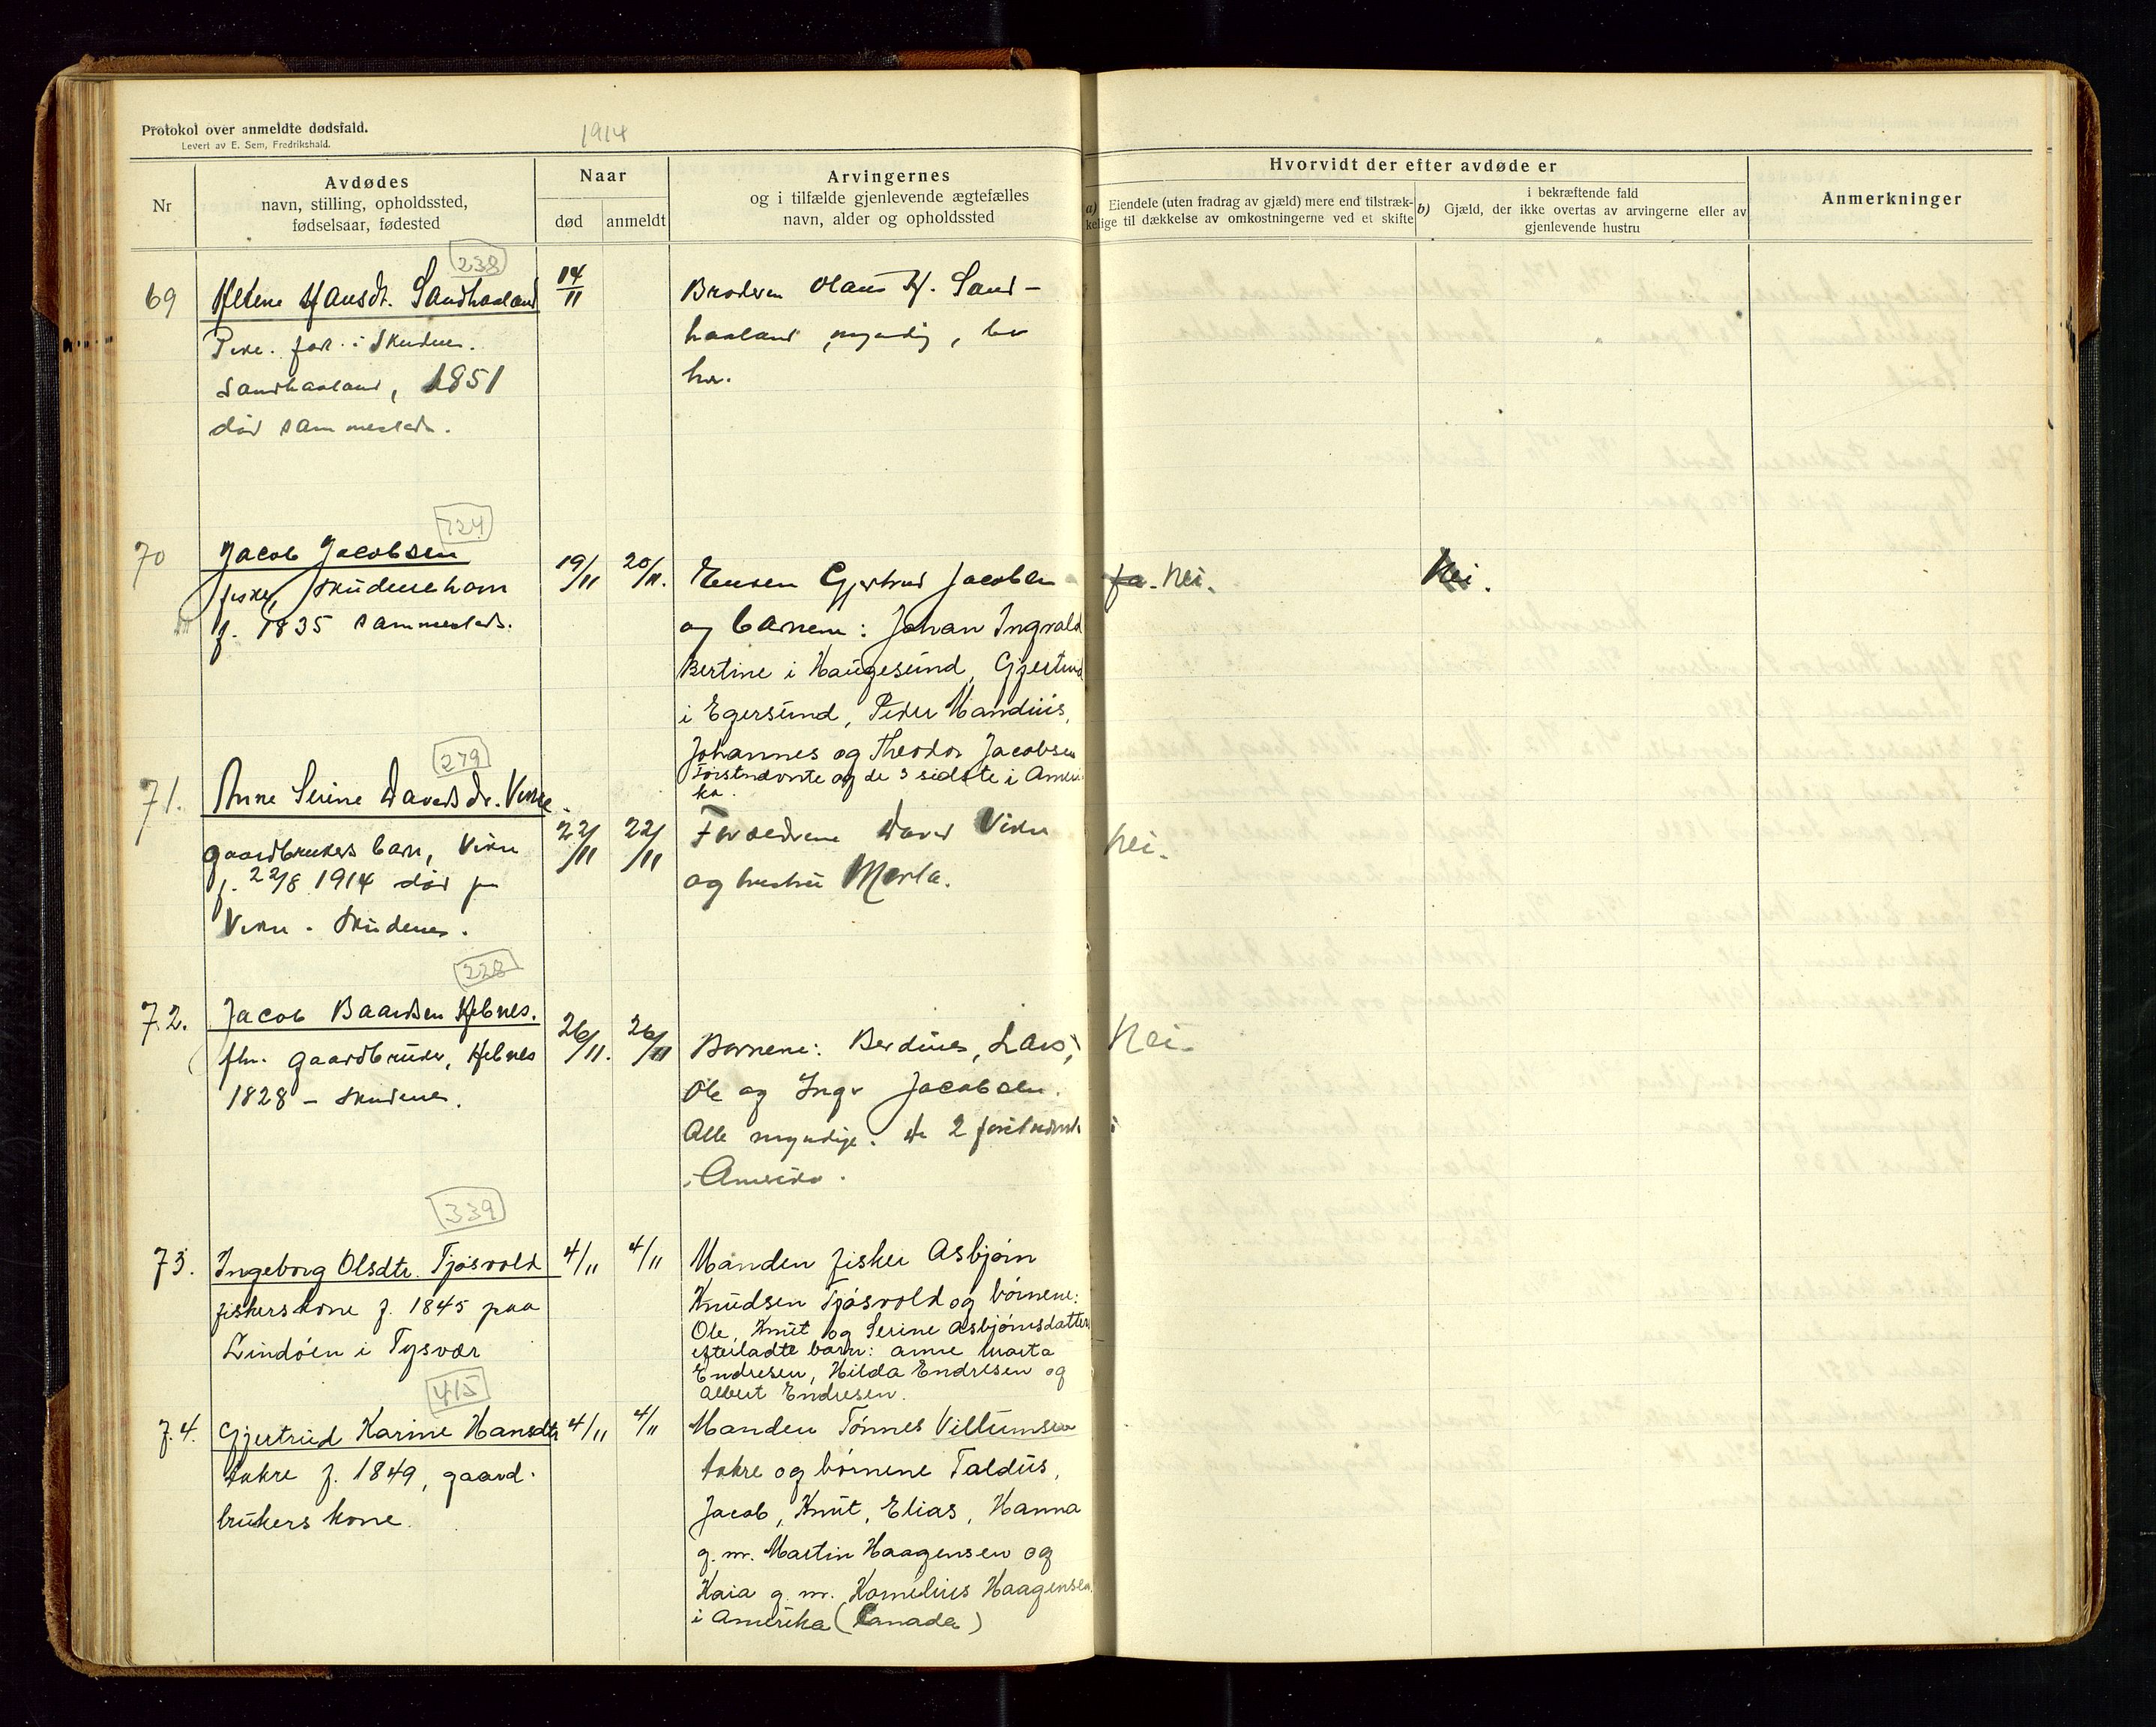 Protokol over anmeldte dødsfald.
Levert av E. Sem, Fredrikshald.
1914
Nr
Avdødes
navn, stilling, opholdssted,
fødselsaar, fødested
Naar
død
anmeldt
Arvingernes
og i tilfælde gjenlevende ægtefælles
navn, alder og opholdssted
Hvorvidt der efter avdøde er
a) Eiendele (uten fradrag av gjæld) mere end tilstræk-
kelige til dækkelse av omkostningerne ved et skifte
i bekræftende fald
b) Gjæld, der ikke overtas av arvingerne eller av
gjenlevende hustru
Anmerkninger
238
69
Helene Hansdt. Sandhaaland
Pike. født i Skudenes.
Sandhaaland, 1851
død sammesteds.
14/11
Broderen Olaus H. Sand-
haaland, myndig, bor
her.
724
70
Jacob Jacobsen
fisker, Skudeneshavn
f. 1835 sammesteds.
19/11
20/11.
Enken Gjertrud Jacobsen
og barnene: Johan Ingvald
Bertine i Haugesund, Gjertrud
i Egersund, Peder Mandius,
Johannes og Theodor Jacobsen
Førstnævnte og de 3 sidste i Ameri-
ka.
Ja. Nei.
Nei.
279
71.
Anne Serine Davidsdr. Vikre.
gaardbrukers barn, Vikre
f. 22/8 1914 død paa
Vikre. Skudenes.
22/11
22/11
Forældrene David Vikre
og hustru Marta.
Nei.
228
72.
Jacob Baardsen Hebnes.
fhv. gaardbruker, Hebnes
1828 - Skudenes.
26/11.
26/11
Barnene: Berdines, Lars,
Ole og Inga Jacobsen.
Alle myndige. De 2 førstnævnte i
Amerika.
Nei.
339
73.
Ingeborg Olsdtr. Tjøsvold
fiskerskone f. 1845 paa
Lindøen i Tysvær
4/11
4/11
Manden fisker Asbjørn
Knudsen Tjøsvold og børnene:
Ole, Knut og Serine Asbjørnsdatters
efterladte barn: Anne Marta
Endresen, Hilda Endresen og
Albert Endresen.
415
74.
Gjertrud Karine Hansdtr
Aakre f. 1849, gaard-
brukers kone.
4/11
4/11
Manden Tønnes Villumsen
Aakre og børnene Taldus,
Jacob, Knut, Elias, Hanna
g. m. Martin Haagensen og
Kaia g. m. Kornelius Haagensen
i Amerika (Canada)